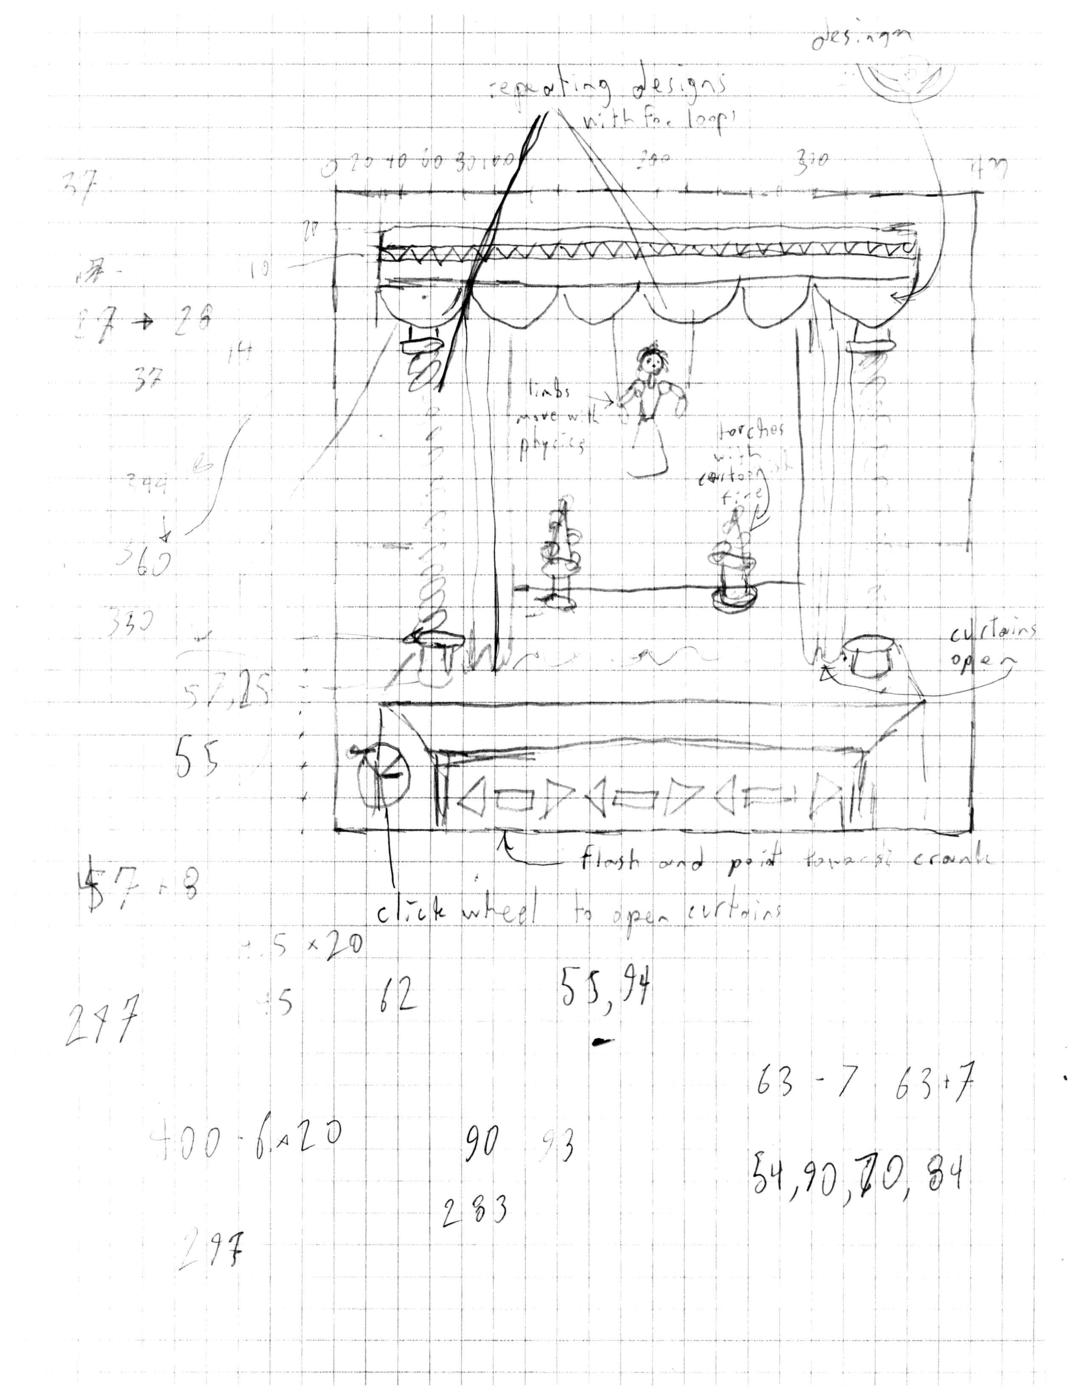 design
repeating designs
with for loops
0 20 40 60 80 100 200 300
37
20
10
27 → 28
14
37
limbs
move with
physics
torches
with
cartoon
fire
344
360
330
curtains
open
57,25
55
flash and point towards crank
57 + 8
click wheel to open curtains
.5 × 20
62
55,94
247
63 - 7 63+7
400 - 6×20
90 93
54,90,70, 84
283
297